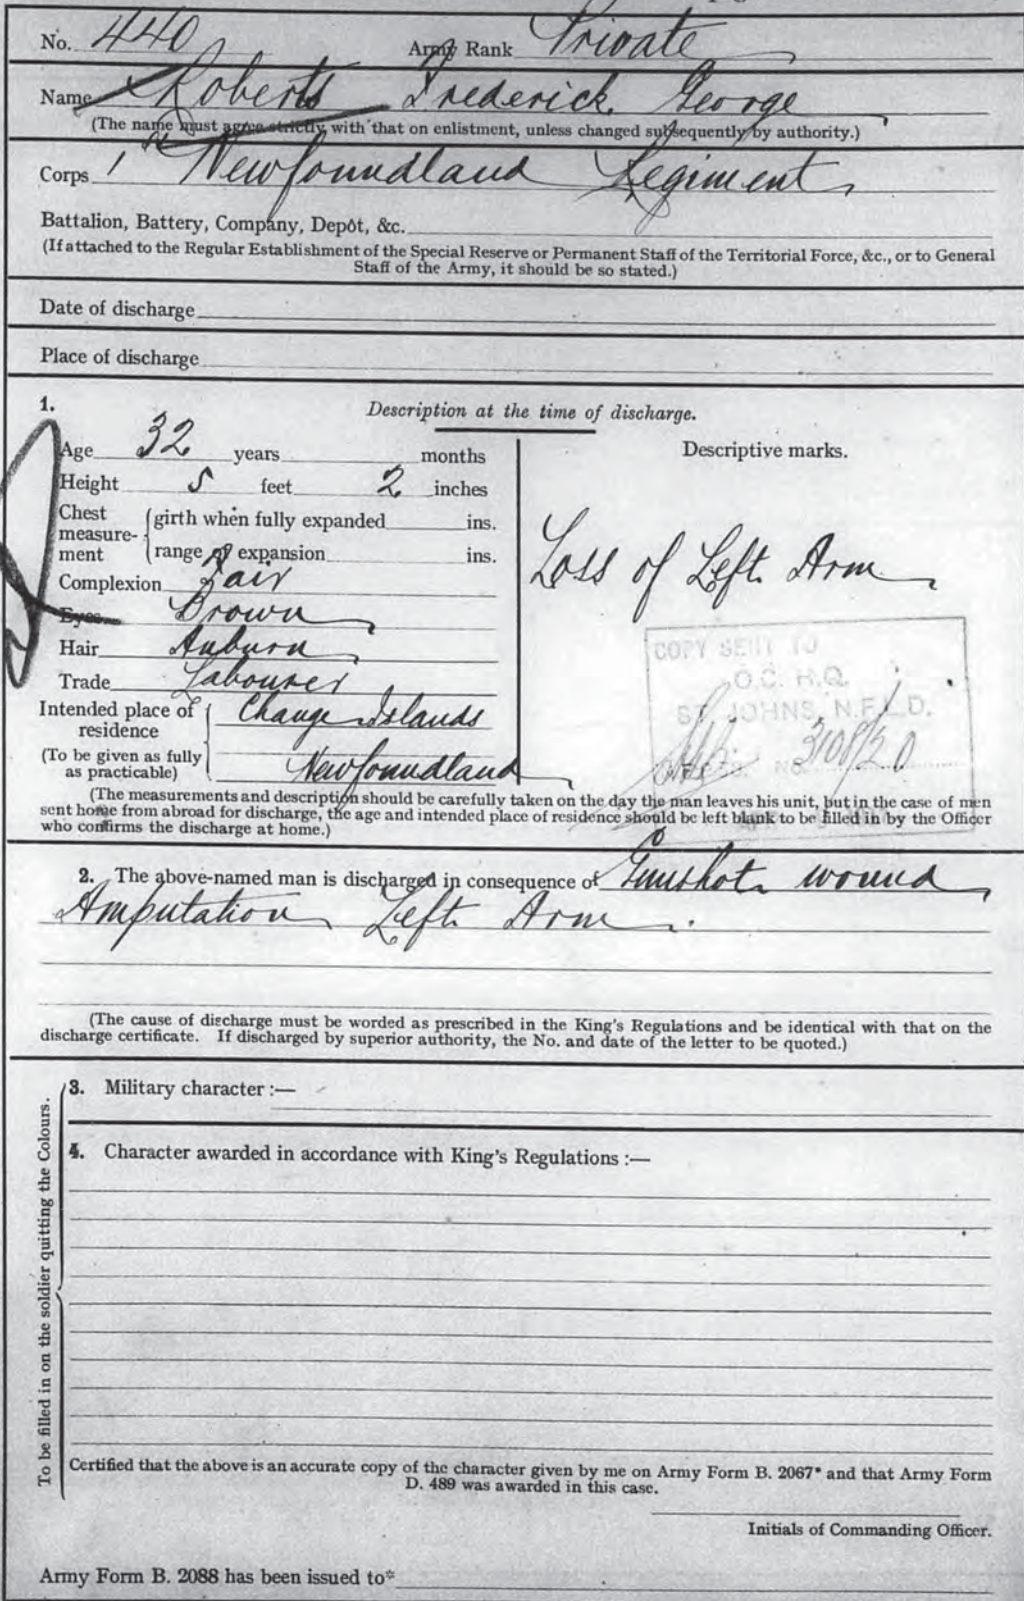 No. 440 Army Rank Private
Name Roberts Frederick George
(The name must agree strictly with that on enlistment, unless changed subsequently by authority.)
Corps 1 Newfoundland Regiment
Battalion, Battery, Company, Depôt, &c.
(If attached to the Regular Establishment of the Special Reserve or Permanent Staff of the Territorial Force, &c., or to General
Staff of the Army, it should be so stated.)
Date of discharge
Place of discharge
1. Description at the time of discharge.
Age 32 years months
Height 5 feet 2 inches
Chest measure-ment
girth when fully expanded ins.
range of expansion ins.
Complexion Fair
Eyes Brown
Hair Auburn
Trade Labourer
Intended place of residence Change Islands
(To be given as fully as practicable) Newfoundland
Descriptive marks.
Loss of Left Arm
COPY SENT TO
O.C. H.Q.
ST. JOHNS, N.F.L.D.
NO. 3108/20
(The measurements and description should be carefully taken on the day the man leaves his unit, but in the case of men
sent home from abroad for discharge, the age and intended place of residence should be left blank to be filled in by the Officer
who confirms the discharge at home.)
2. The above-named man is discharged in consequence of Gunshot wound
Amputation Left Arm.
(The cause of discharge must be worded as prescribed in the King's Regulations and be identical with that on the
discharge certificate. If discharged by superior authority, the No. and date of the letter to be quoted.)
To be filled in on the soldier quitting the Colours.
3. Military character :—
4. Character awarded in accordance with King's Regulations :—
Certified that the above is an accurate copy of the character given by me on Army Form B. 2067* and that Army Form
D. 489 was awarded in this case.
Initials of Commanding Officer.
Army Form B. 2088 has been issued to*